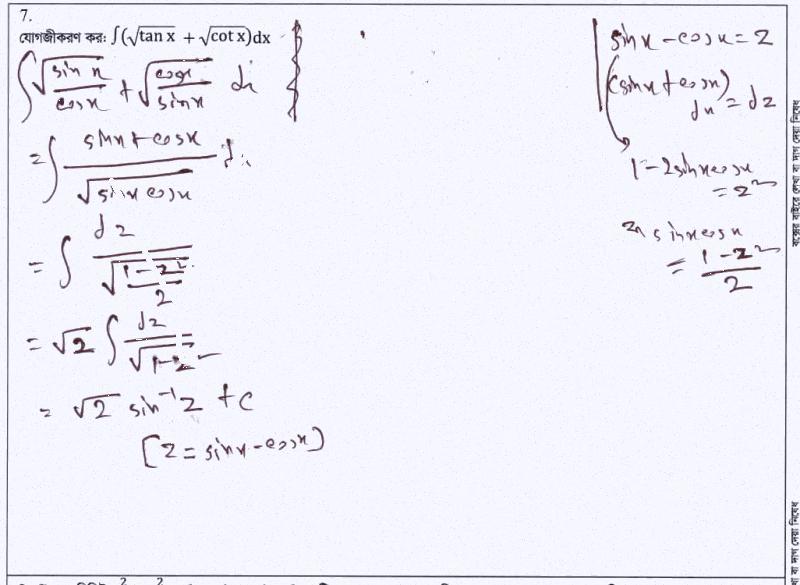 7.
যোগজীকরণ কর: ∫(√tan x + √cot x)dx
∫ √(sin x / cos x) + √(cos x / sin x) dx
= ∫ (sin x + cos x) / √(sin x cos x) dx
= ∫ dz / √((1 - z²) / 2)
= √2 ∫ dz / √(1 - z²)
= √2 sin⁻¹ z + c
[z = sin x - cos x]
sin x - cos x = z
(sin x + cos x) dx = dz
1 - 2 sin x cos x = z²
sin x cos x = (1 - z²) / 2
বক্সের বাইরে লেখা বা দাগ দেয়া নিষেধ
বা দাগ দেয়া নিষেধ